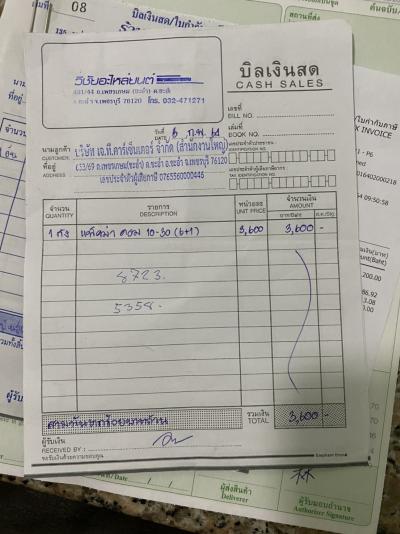 08
บิลเงินสด/ใบกำกับภาษี
สถานที่ส่ง
วิชัยอะไหล่ยนต์
ต.ชะอำ อ.ชะอำ จ.เพชรบุรี 76120 โทร. 032-471271
บิลเงินสด
CASH SALES
เลขที่
BILL NO.
เล่มที่
BOOK NO.
วันที่ 6 ก.พ. 64
DATE
นามลูกค้า บริษัท เจ.ที.คาร์เซ็นเตอร์ จำกัด (สำนักงานใหญ่)
CUSTOMER
ที่อยู่ ถ.เพชรเกษม ต.ชะอำ อ.ชะอำ จ.เพชรบุรี 76120
ADDRESS
เลขประจำตัวผู้เสียภาษี 0765560000446
จำนวน รายการ หน่วยละ จำนวนเงิน
QUANTITY DESCRIPTION UNIT PRICE AMOUNT
บาท/Baht
1 ถัง 10-30 (6+1) 3,600 3,600 -
8723.
5358.
สามพันหกร้อยบาทถ้วน
รวมเงิน
TOTAL 3,600 -
ผู้รับเงิน
RECEIVED BY :
ขอรับเงินด้วยความขอบคุณ
Elephant Brand
X INVOICE
- P6
016402000218
09:50:58
200.00
86.92
13.08
ผู้ส่งสินค้า
Deliverer
ผู้รับมอบอำนาจ
Authorizer Signature